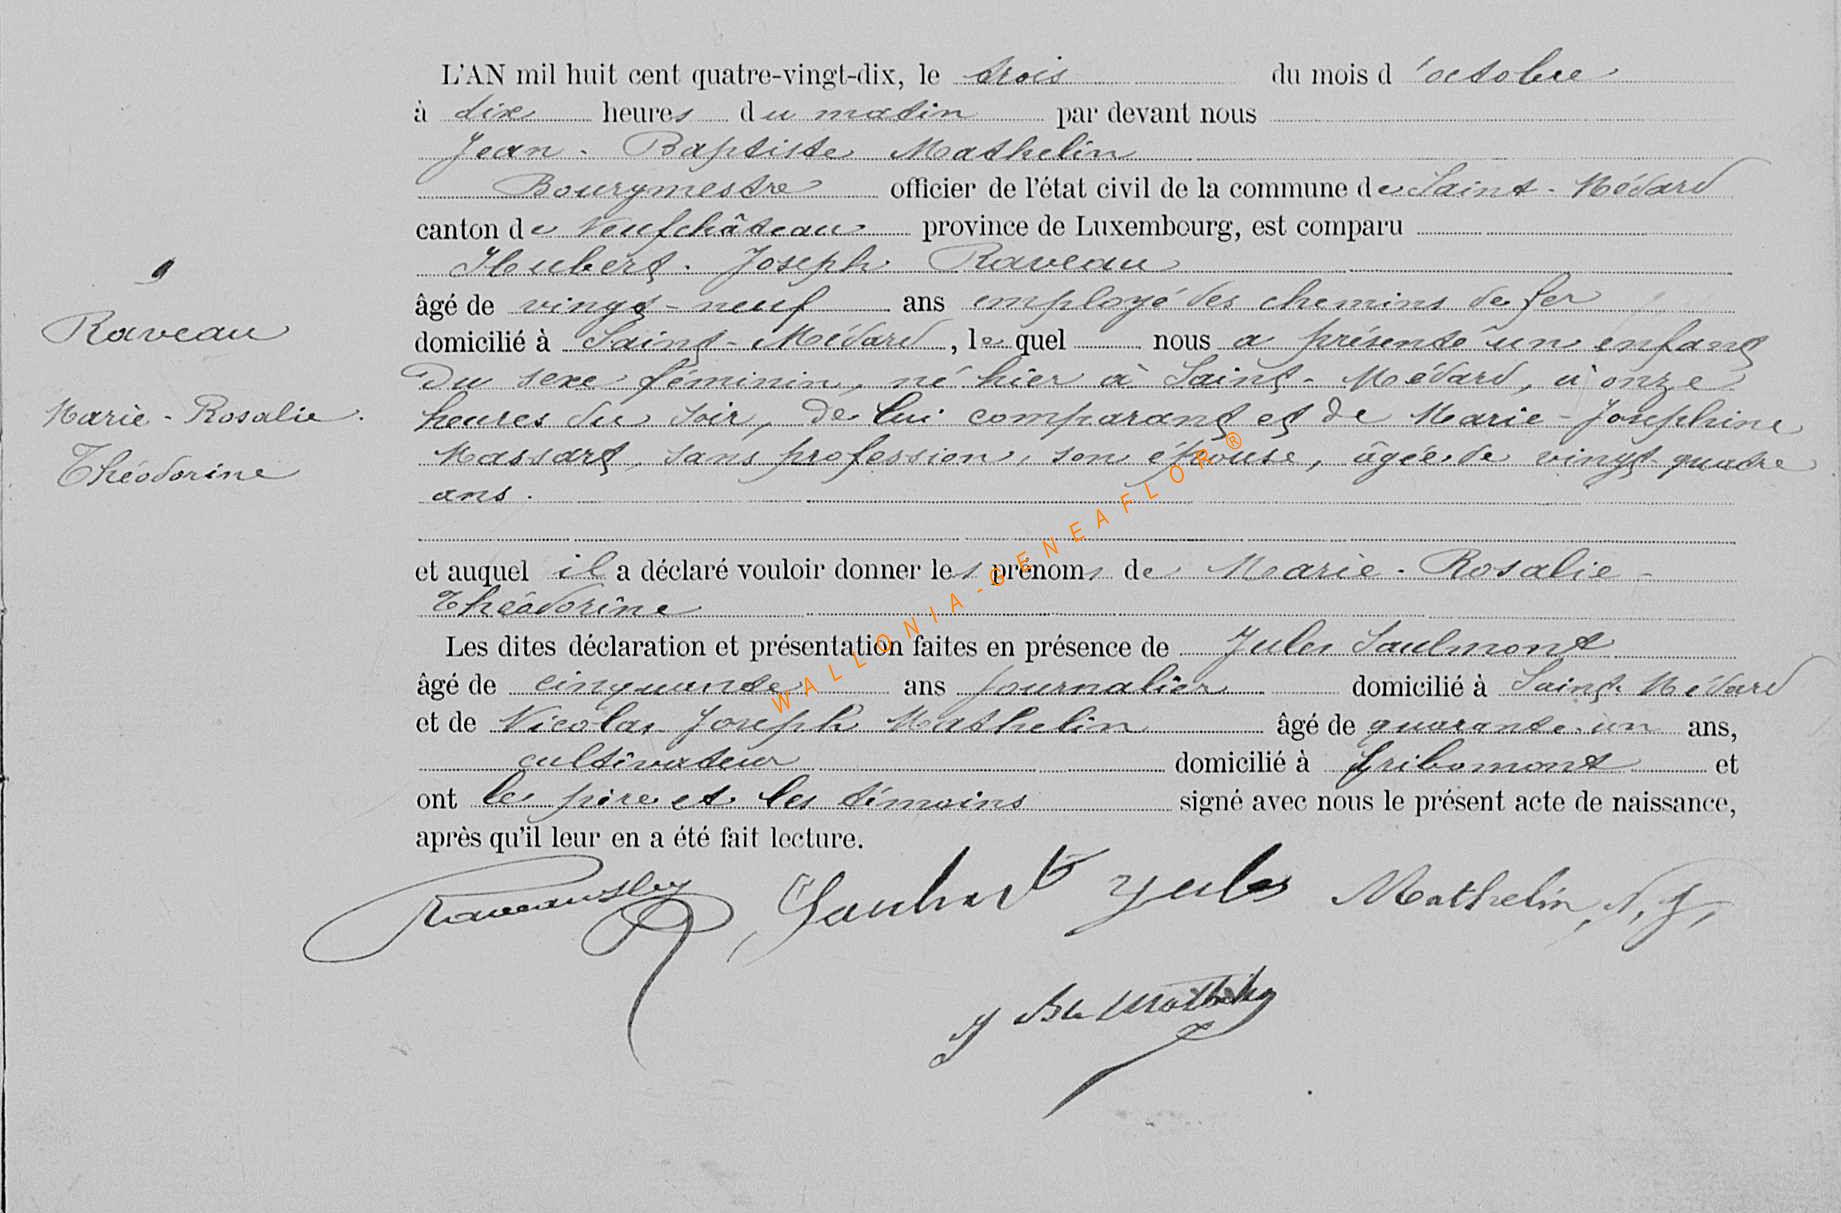 L'AN mil huit cent quatre-vingt-dix, le trois du mois d'octobre
à dix heures du matin par devant nous
Jean-Baptiste Mathelin
Bourgmestre officier de l'état civil de la commune de Saint-Médard
canton de Neufchâteau province de Luxembourg, est comparu
Hubert-Joseph Raveau
âgé de vingt-neuf ans employé des chemins de fer
domicilié à Saint-Médard, lequel nous a présenté un enfant
du sexe féminin, né hier à Saint-Médard, à onze
heures du soir, de lui comparant et de Marie-Joséphine
Massart, sans profession, son épouse, âgée de vingt quatre
ans.
et auquel il a déclaré vouloir donner les prénoms de Marie-Rosalie-
Théodorine
Les dites déclaration et présentation faites en présence de Jules Saulmont
âgé de cinquante ans journalier domicilié à Saint-Médard
et de Nicolas Joseph Mathelin âgé de quarante-un ans,
cultivateur domicilié à Gribomont et
ont le père et les témoins signé avec nous le présent acte de naissance,
après qu'il leur en a été fait lecture.
9
Raveau
Marie-Rosalie
Théodorine
Jules Mathelin, N, J,
J Bte Mathelin
WALLONIA-GENEAFLOR ®